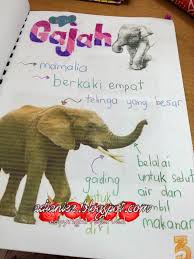 Gajah
mamalia
berkaki empat
telinga yang besar
belalai
untuk sedut
air dan
ambil
makanan
gading
untuk
diri